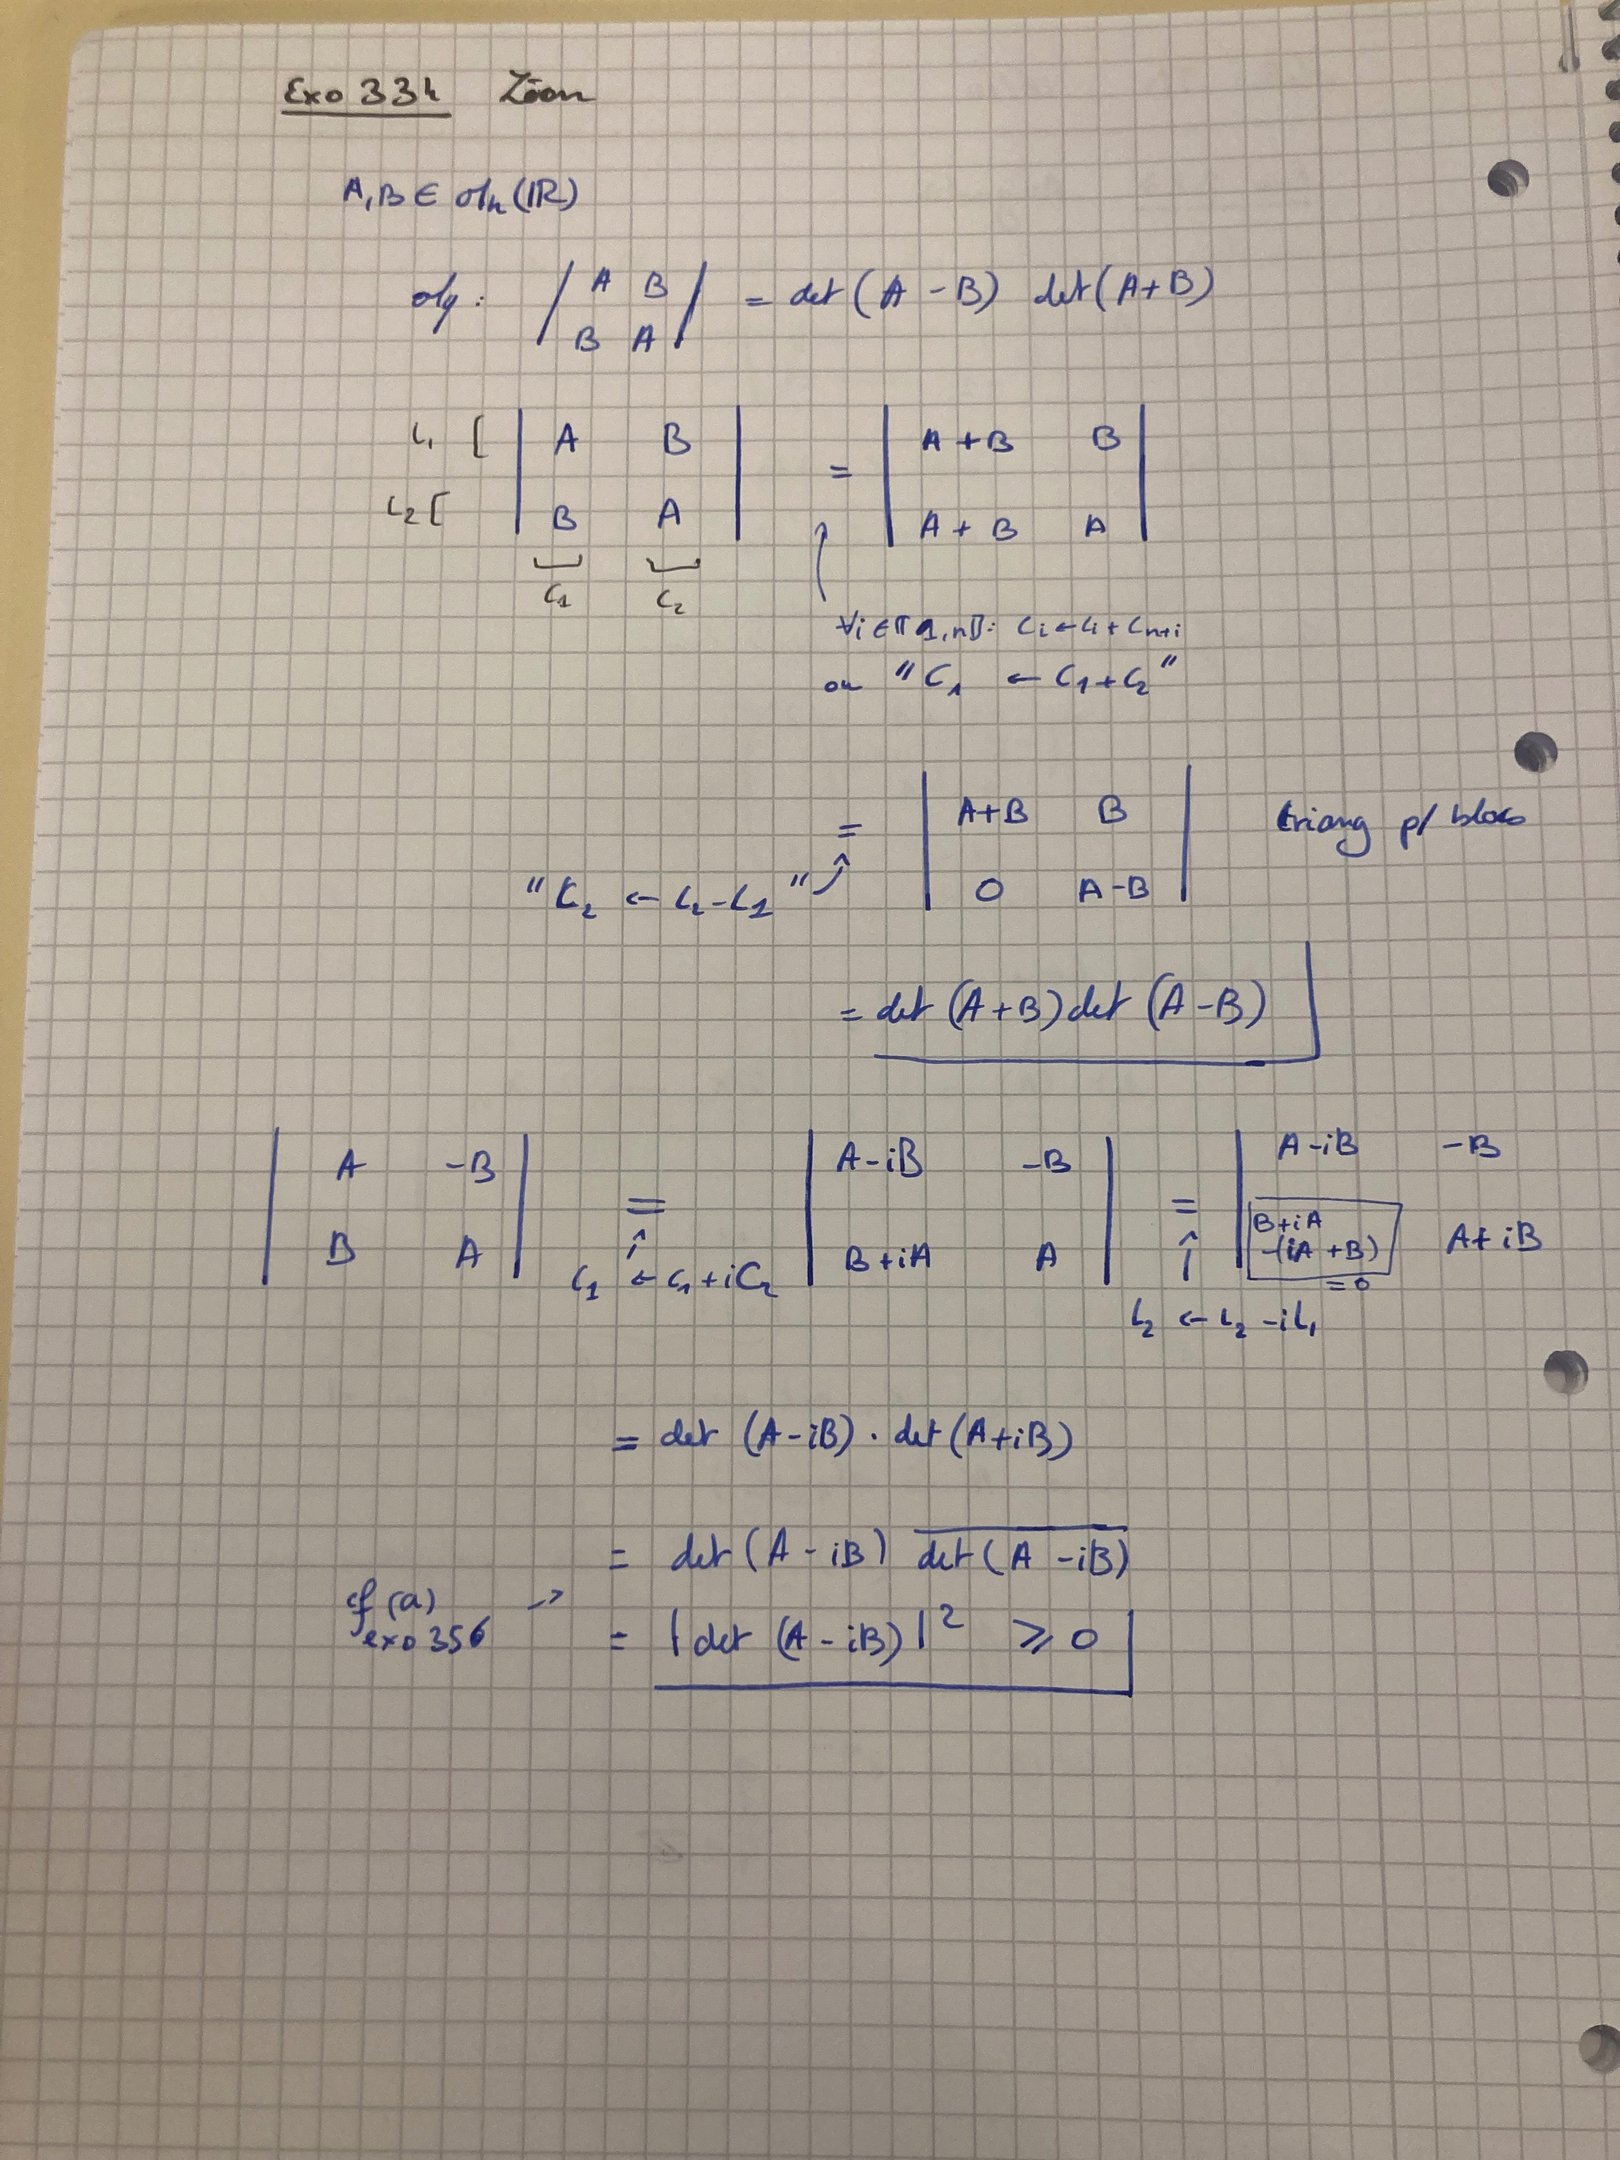 Exo 334 Léon
A, B ∈ ℳn(ℝ)
Mq : | A B | = det(A - B) det(A + B)
| B A |
L1 [ | A B | = | A + B B |
L2 [ | B A | | A + B A |
C1 C2
∀i ∈ ⟦1, n⟧ : Ci ← Ci + Cn+i
ou "C1 ← C1 + C2"
= | A+B B | triang p/ blocs
"L2 ← L2 - L1" | 0 A - B |
= det(A + B) det(A - B)
| A -B | = | A - iB -B | = | A - iB -B |
| B A | | B + iA A | | B + iA - (iA + B) A + iB |
= 0
C1 ← C1 + iC2
L2 ← L2 - iL1
= det(A - iB) · det(A + iB)
= det(A - iB) \overline{det(A - iB)}
cf (a) exo 356 → = |det(A - iB)|² ⩾ 0